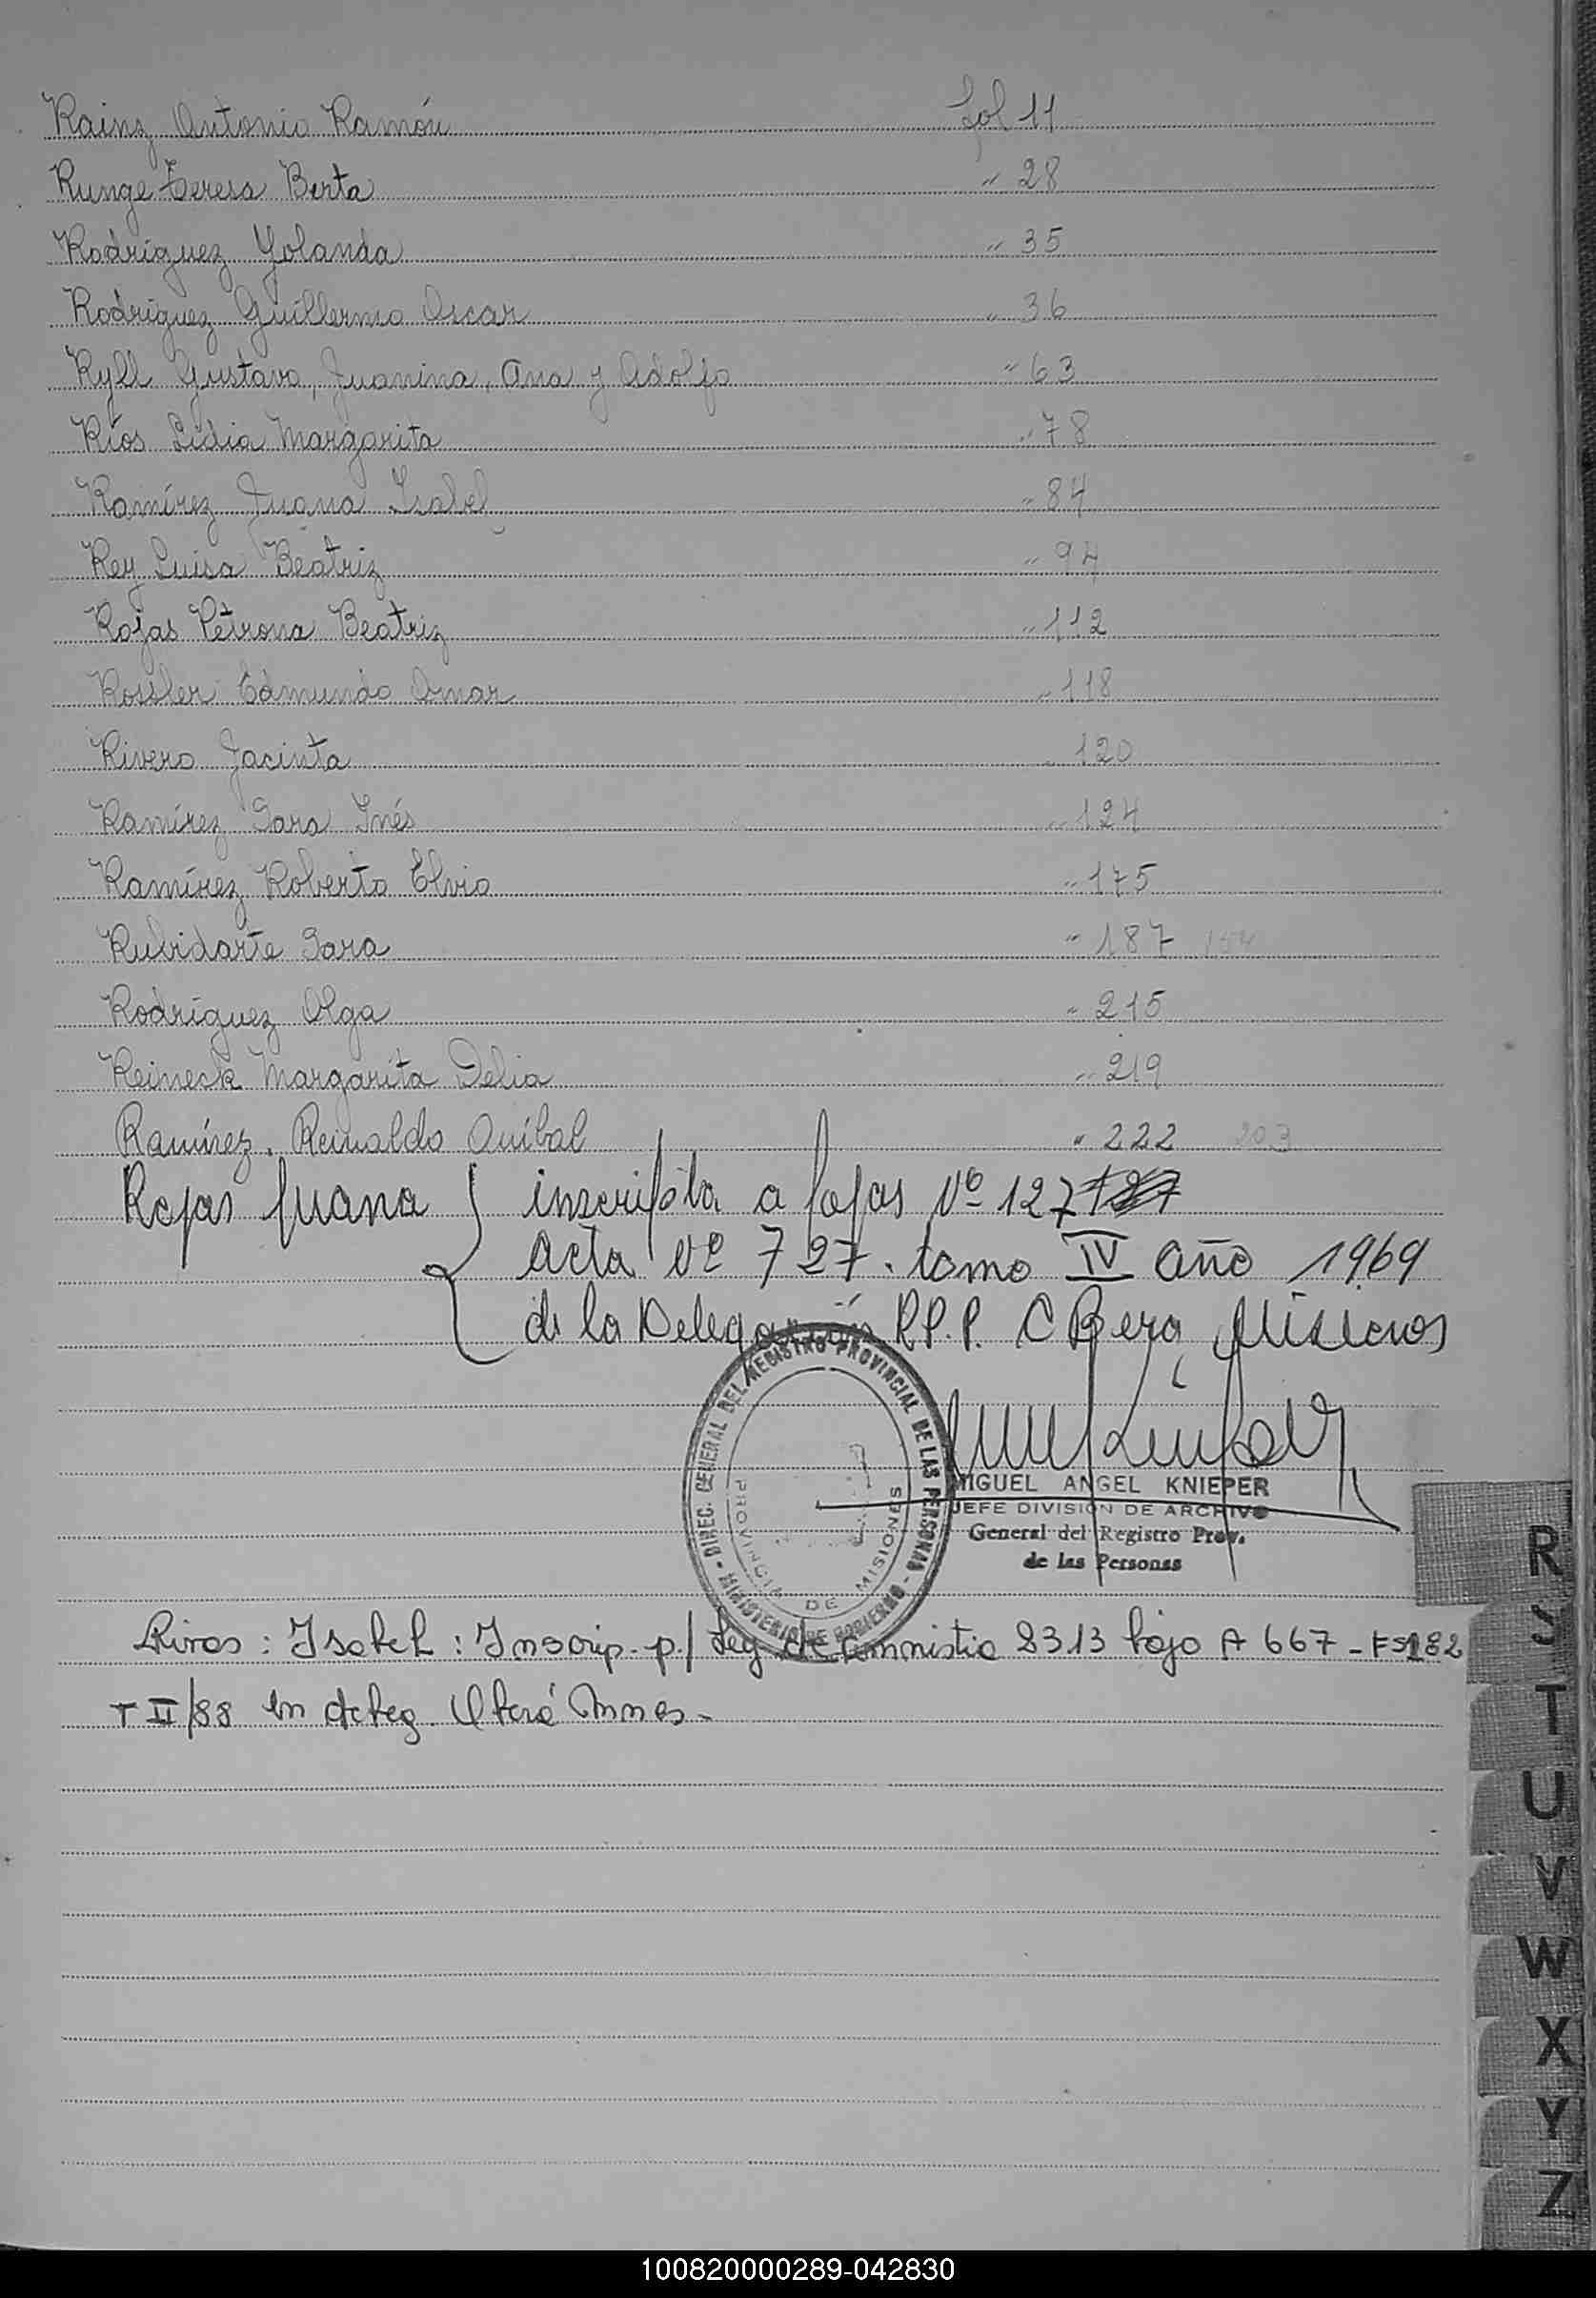 Rainz Antonio Ramón Fol 11
Runge Teresa Berta " 28
Rodríguez Yolanda " 35
Rodríguez Guillermo Oscar " 36
Ryll Gustavo, Juanina, Ana y Adolfo " 63
Ríos Lidia Margarita " 78
Ramírez Juana Isabel " 84
Rey Luisa Beatriz " 94
Rojas Petrona Beatriz " 112
Rossler Edmundo Omar " 118
Rivero Jacinta " 120
Ramírez Sara Inés " 124
Ramírez Roberto Elvio " 175
Rubidarte Sara " 187
Rodríguez Olga " 215
Reineck Margarita Delia " 219
Ramírez. Reinaldo Aníbal " 222 203
Rojas Juana inscripta a fojas Nº 127
acta Nº 727. tomo IV año 1969
de la Delegación R.P.P. C Bera, Misiones
DIREC. GENERAL DEL REGISTRO PROVINCIAL DE LAS PERSONAS - MINISTERIO DE GOBIERNO -
PROVINCIA DE MISIONES
MIGUEL ANGEL KNIEPER
JEFE DIVISION DE ARCHIVO
General del Registro Prov.
de las Personas
Rivas: Isabel: Inscrip. p./ Ley de amnistia 2313 bajo A 667 - Fs 182
T II/88 en deleg. Oberá Mnes.-
R
S
T
U
V
W
X
Y
Z
100820000289-042830